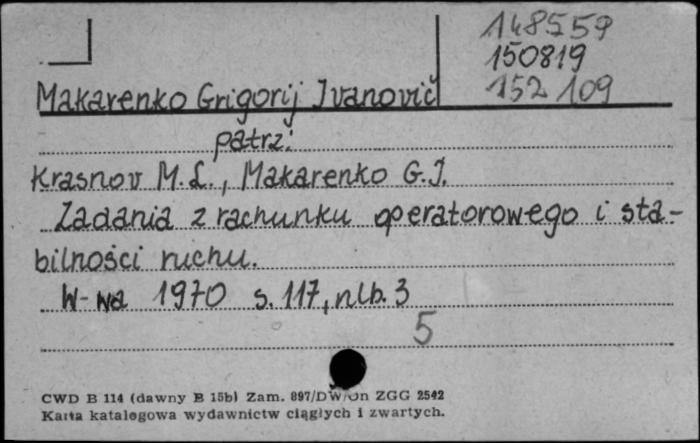 148559
150819
152109
Makarenko Grigorij Ivanovič
patrz:
Krasnov M.L., Makarenko G.I.
Zadania z rachunku operatorowego i sta-
bilności ruchu.
W-wa 1970 s. 117, nlb. 3
5
CWD B 114 (dawny B 15b) Zam. 897/DW/Un ZGG 2542
Karta katalogowa wydawnictw ciągłych i zwartych.